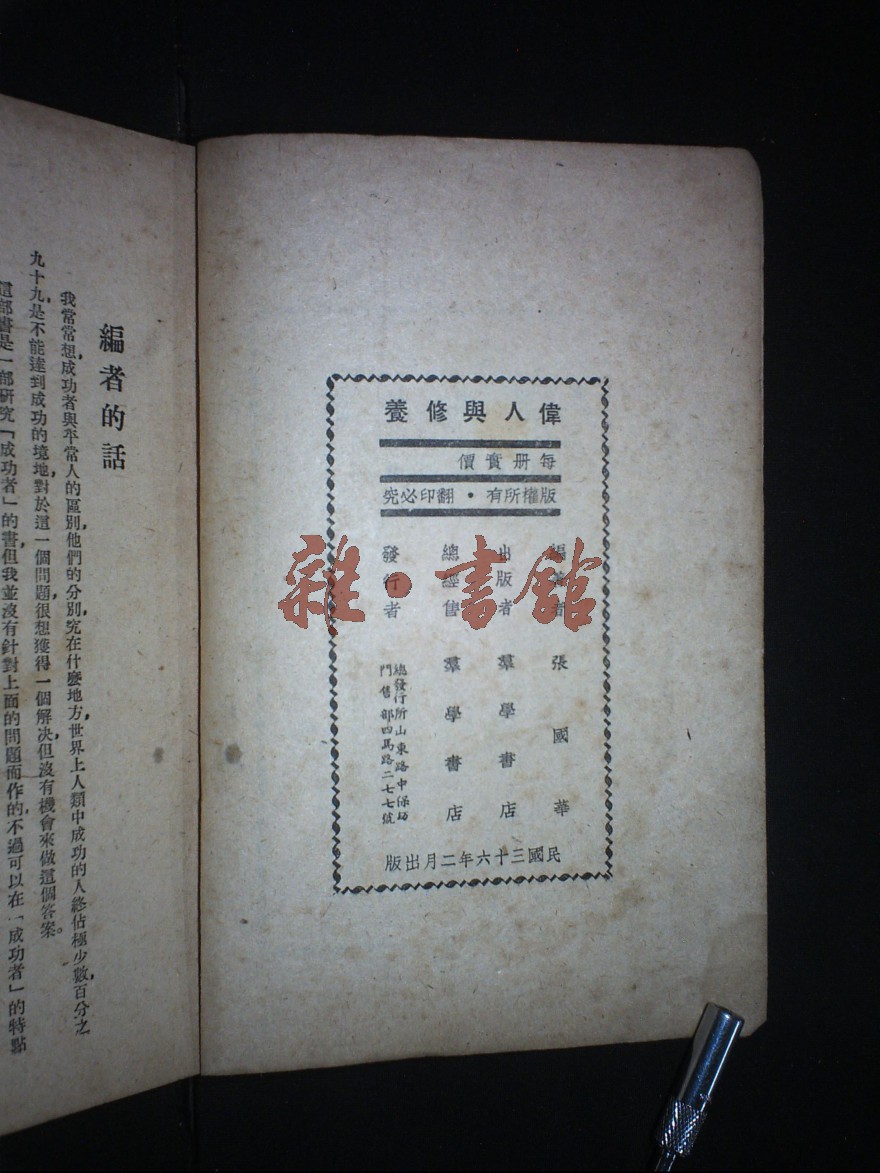 偉人與修養
每册實價
版權所有・翻印必究
編著者 張國華
出版者 羣學書店
總經售 羣學書店
發行者
總發行所山東路中保坊
門售部四馬路二七七號
民國三十六年二月出版
雜・書館
編者的話
我常常想，成功者與平常人的區別，他們的分別究在什麼地方，世界上人類中成功的人終佔極少數，百分之
九十九，是不能達到成功的境地，對於這一個問題，很想獲得一個解決，但沒有機會來做這個答案。
這部書是一部研究「成功者」的書，但我並沒有針對上面的問題而作的，不過可以在「成功者」的特點